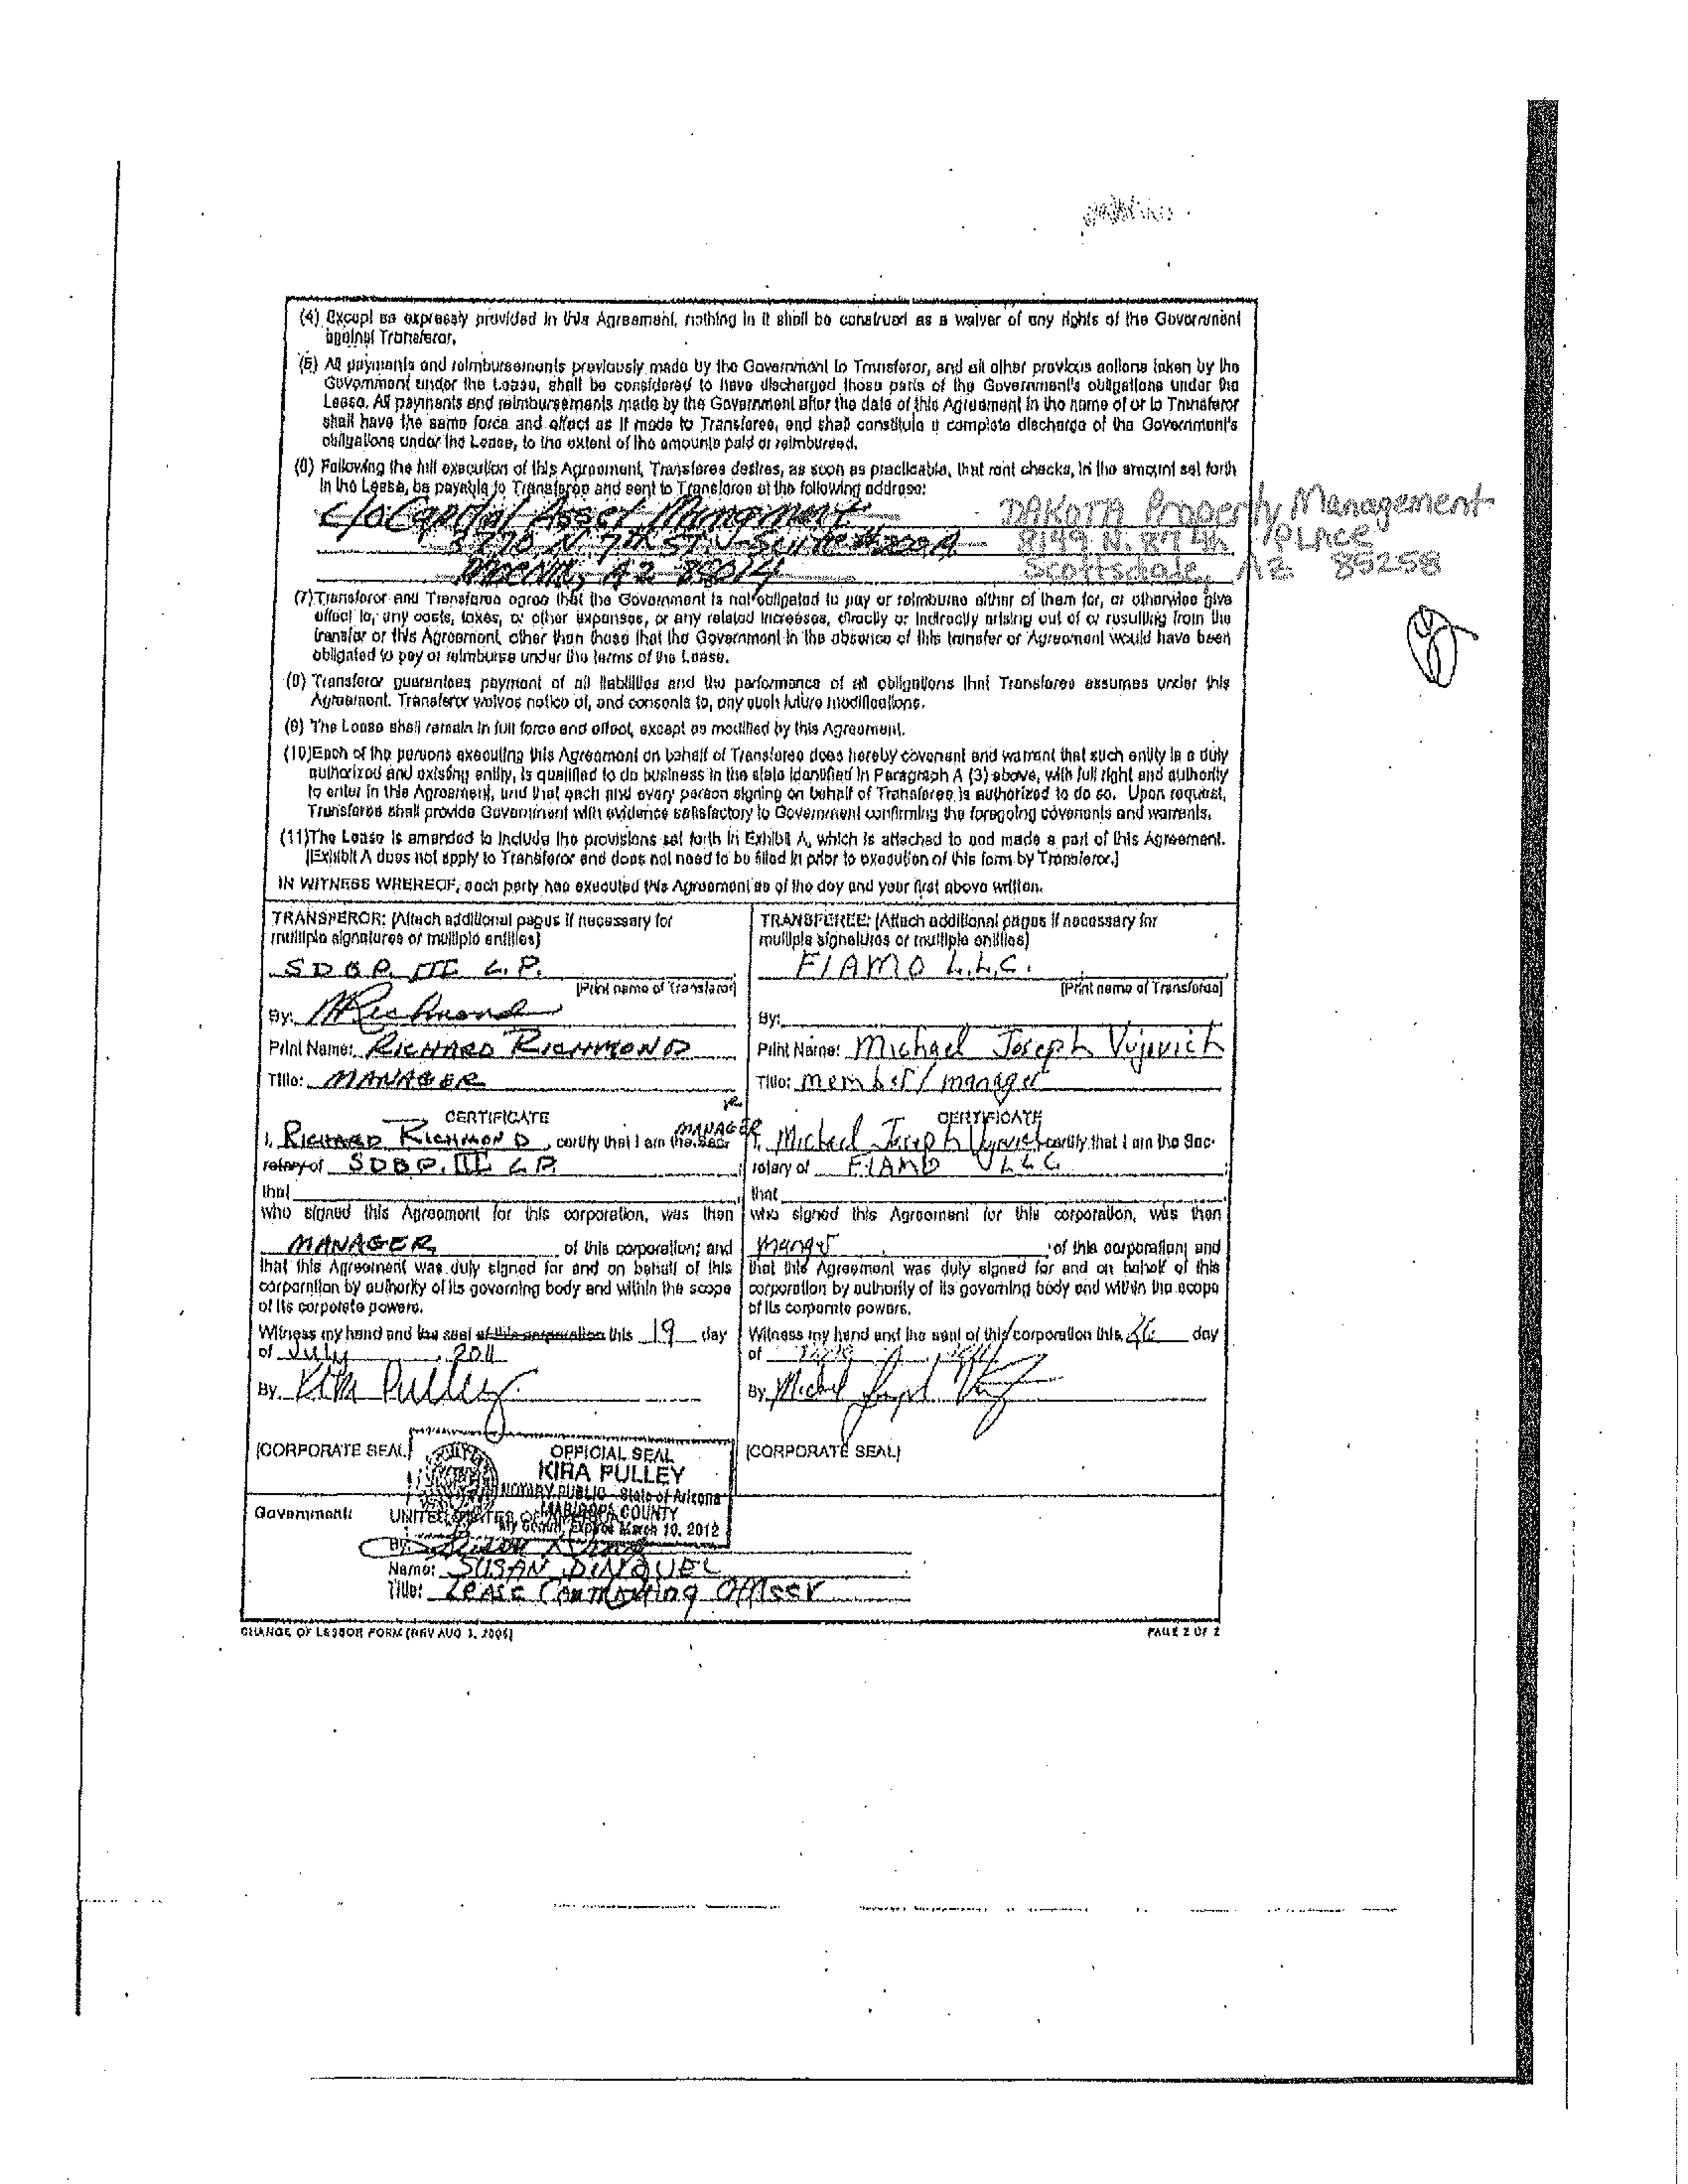 (4) Except as expressly provided in this Agreement, nothing in it shall be construed as a waiver of any rights of the Government
against Transferor.
(5) All payments and reimbursements previously made by the Government to Transferor, and all other previous actions taken by the
Government under the Lease, shall be considered to have discharged those parts of the Government's obligations under the
Lease. All payments and reimbursements made by the Government after the date of this Agreement in the name of or to Transferor
shall have the same force and effect as if made to Transferee, and shall constitute a complete discharge of the Government's
obligations under the Lease, to the extent of the amounts paid or reimbursed.
(6) Following the full execution of this Agreement, Transferee desires, as soon as practicable, that rent checks, in the amount set forth
in the Lease, be payable to Transferee and sent to Transferee at the following address:
c/o Capital Asset Mangment DAKOTA Property Management
N. 7th ST. Suite #200A 8149 N. 87th PLACE
Phoenix, AZ 85014 Scottsdale, AZ 85258
(7) Transferor and Transferee agree that the Government is not obligated to pay or reimburse either of them for, or otherwise give
effect to, any costs, taxes, or other expenses, or any related increases, directly or indirectly arising out of or resulting from the
transfer or this Agreement, other than those that the Government in the absence of this transfer or Agreement would have been
obligated to pay or reimburse under the terms of the Lease.
(8) Transferor guarantees payment of all liabilities and the performance of all obligations that Transferee assumes under this
Agreement. Transferor waives notice of, and consents to, any such future modifications.
(9) The Lease shall remain in full force and effect, except as modified by this Agreement.
(10) Each of the persons executing this Agreement on behalf of Transferee does hereby covenant and warrant that such entity is a duly
authorized and existing entity, is qualified to do business in the state identified in Paragraph A (3) above, with full right and authority
to enter in this Agreement, and that each and every person signing on behalf of Transferee is authorized to do so. Upon request,
Transferee shall provide Government with evidence satisfactory to Government confirming the foregoing covenants and warrants.
(11) The Lease is amended to include the provisions set forth in Exhibit A, which is attached to and made a part of this Agreement.
[Exhibit A does not apply to Transferor and does not need to be filled in prior to execution of this form by Transferor.]
IN WITNESS WHEREOF, each party has executed this Agreement as of the day and year first above written.
TRANSFEROR: [Attach additional pages if necessary for
multiple signatures or multiple entities]
SDBP. III L.P.
[Print name of Transferor]
By: Richmond
Print Name: RICHARD RICHMOND
Title: MANAGER
CERTIFICATE
I, RICHARD RICHMOND, certify that I am the Sec- MANAGER
retary of SDBP. III L.P.
that
who signed this Agreement for this corporation, was then
MANAGER of this corporation; and
that this Agreement was duly signed for and on behalf of this
corporation by authority of its governing body and within the scope
of its corporate powers.
Witness my hand and the seal of this corporation this 19 day
of July, 2011
By Kira Pulley
[CORPORATE SEAL]
OFFICIAL SEAL
KIRA PULLEY
NOTARY PUBLIC - State of Arizona
MARICOPA COUNTY
My Comm. Expires March 10, 2012
TRANSFEREE: [Attach additional pages if necessary for
multiple signatures or multiple entities]
FIAMO L.L.C.
[Print name of Transferee]
By:
Print Name: Michael Joseph Vujovich
Title: member/manager
CERTIFICATE
I, Michael Joseph Vujovich certify that I am the Sec-
retary of FIAMO LLC
that
who signed this Agreement for this corporation, was then
mangr of this corporation; and
that this Agreement was duly signed for and on behalf of this
corporation by authority of its governing body and within the scope
of its corporate powers.
Witness my hand and the seal of this corporation this 26 day
of
By Michael Joseph
[CORPORATE SEAL]
Government: UNITED STATES OF AMERICA
By:
Name: SUSAN DINQUEL
Title: Lease Contracting Officer
CHANGE OF LESSOR FORM (REV AUG 1, 2005)
PAGE 2 OF 2